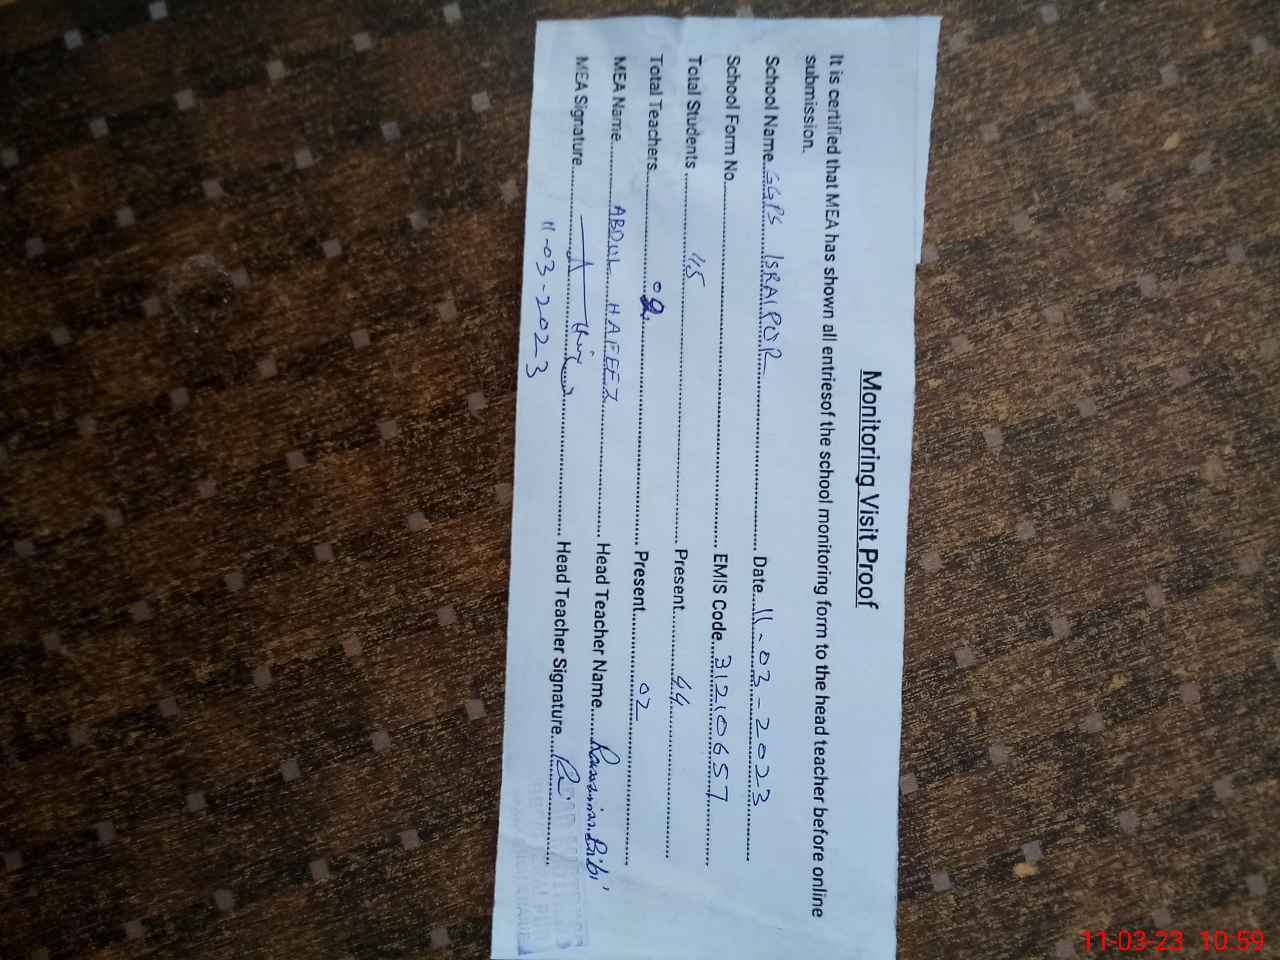 Monitoring Visit Proof
It is certified that MEA has shown all entriesof the school monitoring form to the head teacher before online
submission.
School Name GGPS ISRAIPUR Date 11-03-2023
School Form No. EMIS Code 31210657
Total Students 45 Present 44
Total Teachers 02 Present 02
MEA Name ABDUL HAFEEZ Head Teacher Name Bibi
MEA Signature Head Teacher Signature
11-03-2023
11-03-23 10:59